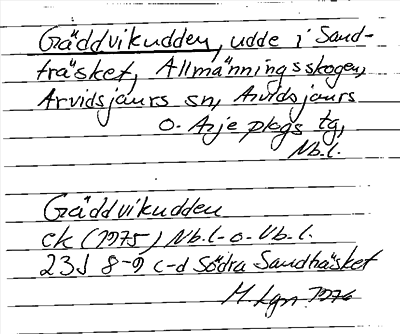 Gäddvikudden, udde i Sand-
träsket, Allmänningsskogen,
Arvidsjaurs sn, Arvidsjaurs
o. Arjeplogs tg,
Nb.l.
Gäddvikudden
ek (1975) Nb.l. o. Vb.l.
23J 8-9 c-d Södra Sandträsket
M. Lgn 1976